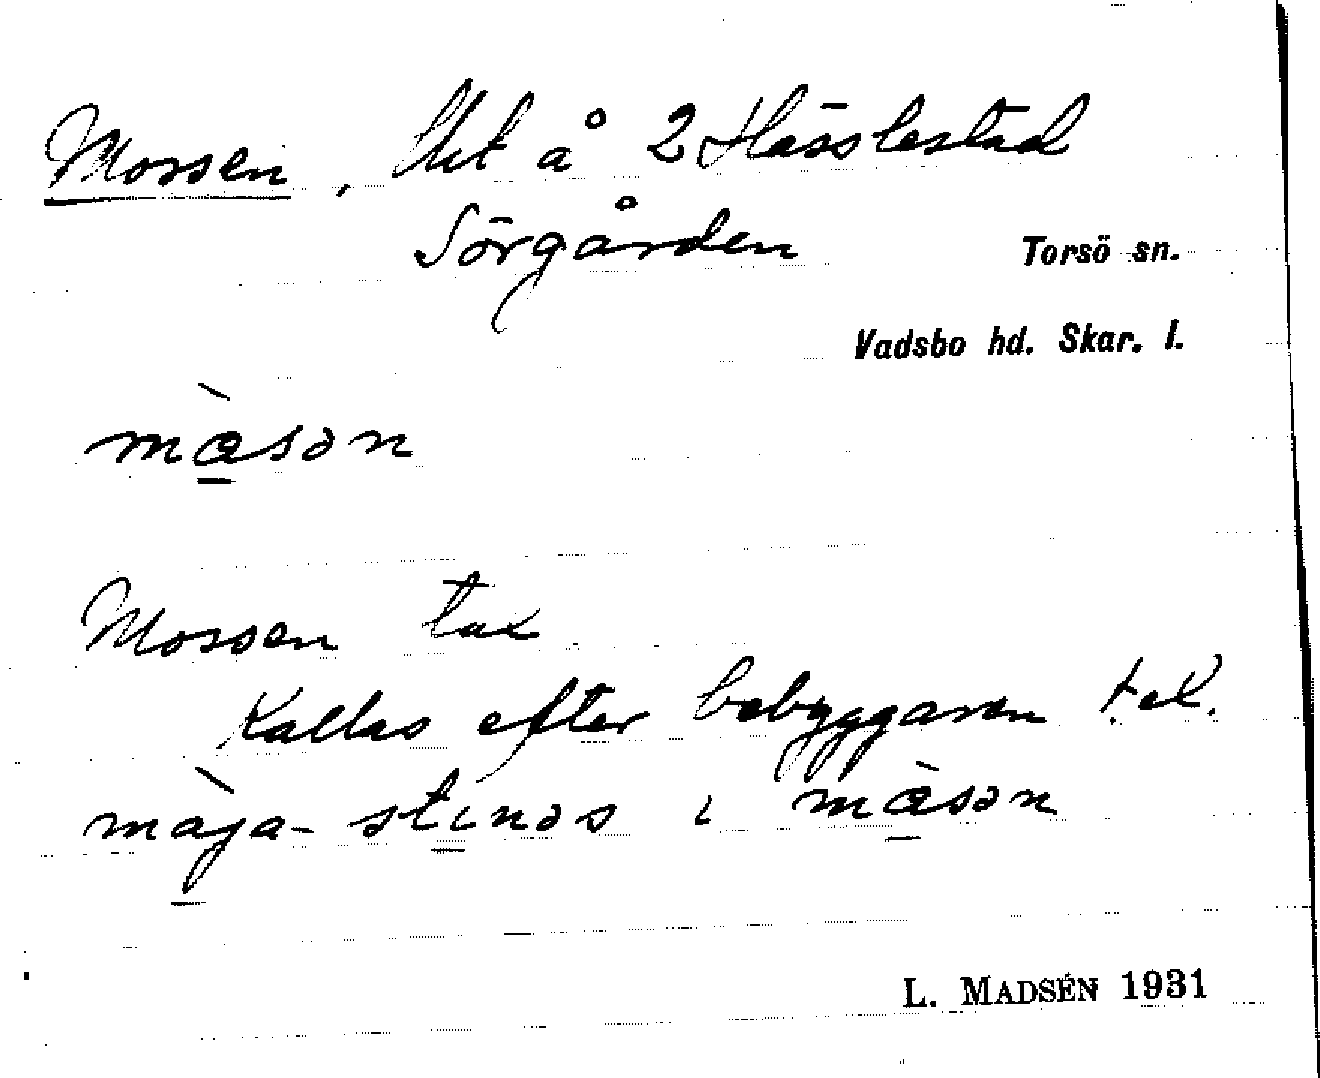 Mossen, lht å 2 Hässlestad
Sörgården
Torsö sn.
Vadsbo hd. Skar. l.
màsən
Mossen tax
Kallas efter bebyggaren t.ex.
màja-stinəs i màsən
L. MADSÉN 1931